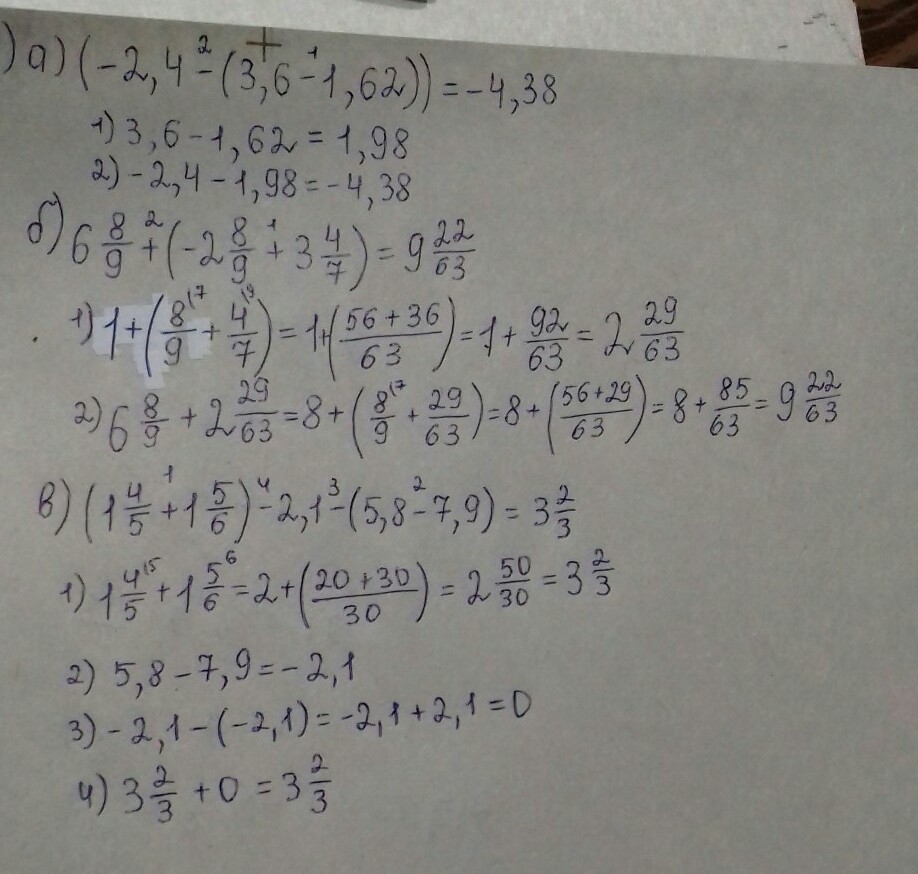 ) а) (-2,4 -² (3,6 -¹ 1,62)) = -4,38
1) 3,6 - 1,62 = 1,98
2) -2,4 - 1,98 = -4,38
б) 6 8/9 +² (-2 8/9 +¹ 3 4/7) = 9 22/63
1) 1 + (8/9 ⁽⁷ + 4/7 ⁽⁹) = 1 + (56 + 36/63) = 1 + 92/63 = 2 29/63
2) 6 8/9 + 2 29/63 = 8 + (8/9 ⁽⁷ + 29/63) = 8 + (56+29/63) = 8 + 85/63 = 9 22/63
в) (1 4/5 +¹ 1 5/6) -⁴ 2,1 -³ (5,8 -² 7,9) = 3 2/3
1) 1 4/5 ⁽⁵ + 1 5/6 ⁶ = 2 + (20 + 30/30) = 2 50/30 = 3 2/3
2) 5,8 - 7,9 = -2,1
3) -2,1 - (-2,1) = -2,1 + 2,1 = 0
4) 3 2/3 + 0 = 3 2/3